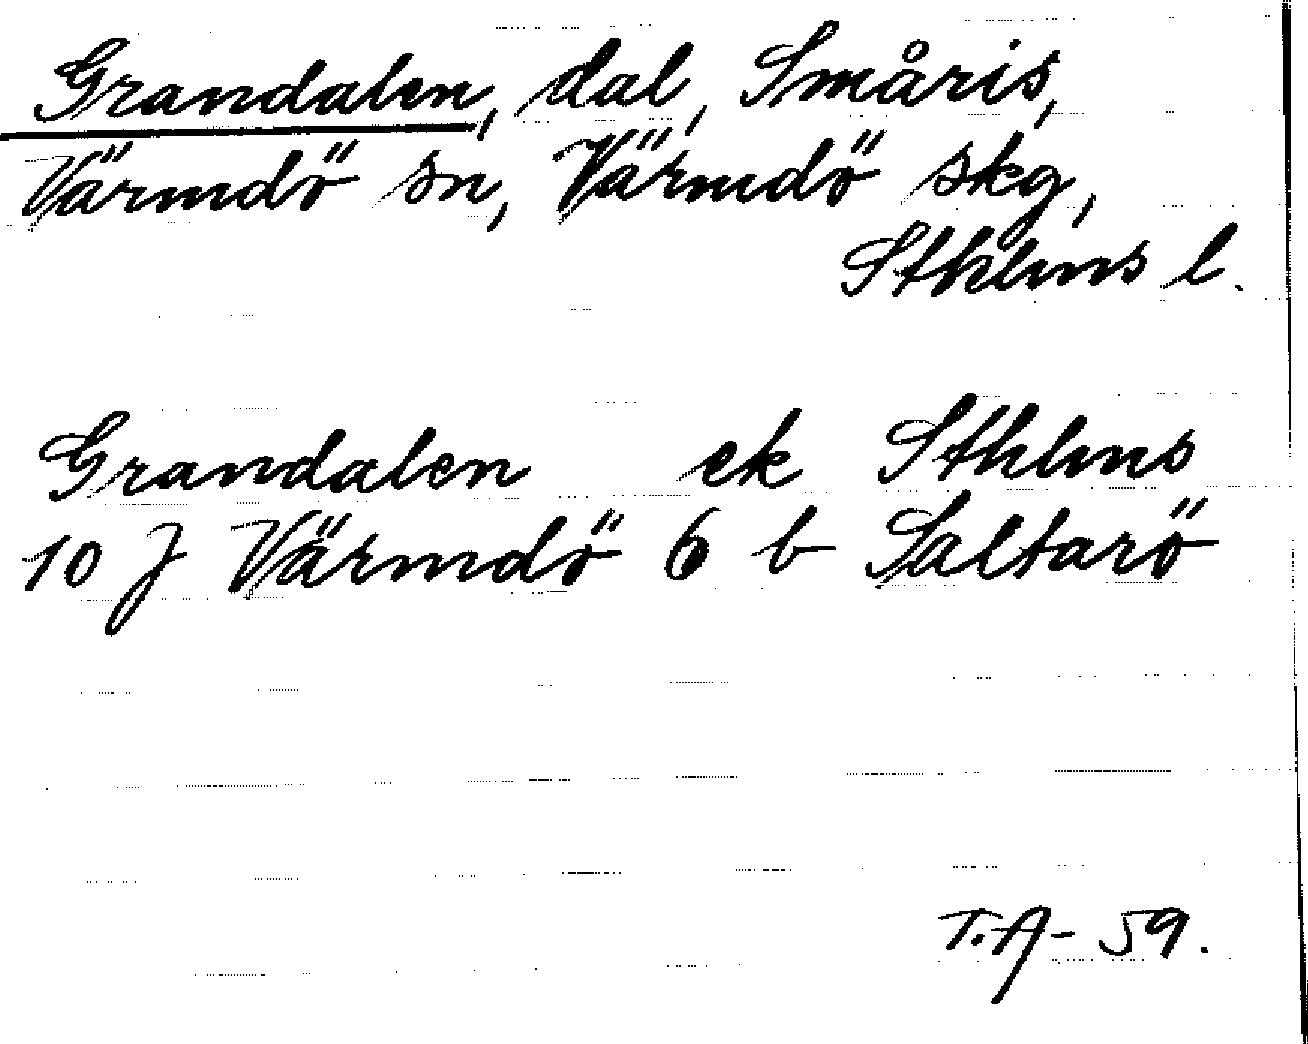 Grandalen, dal, Småris,
Värmdö sn, Värmdö skg,
Sthlms l.
Grandalen ek Sthlms
10 J Värmdö 6 b Saltarö
T.A-59.